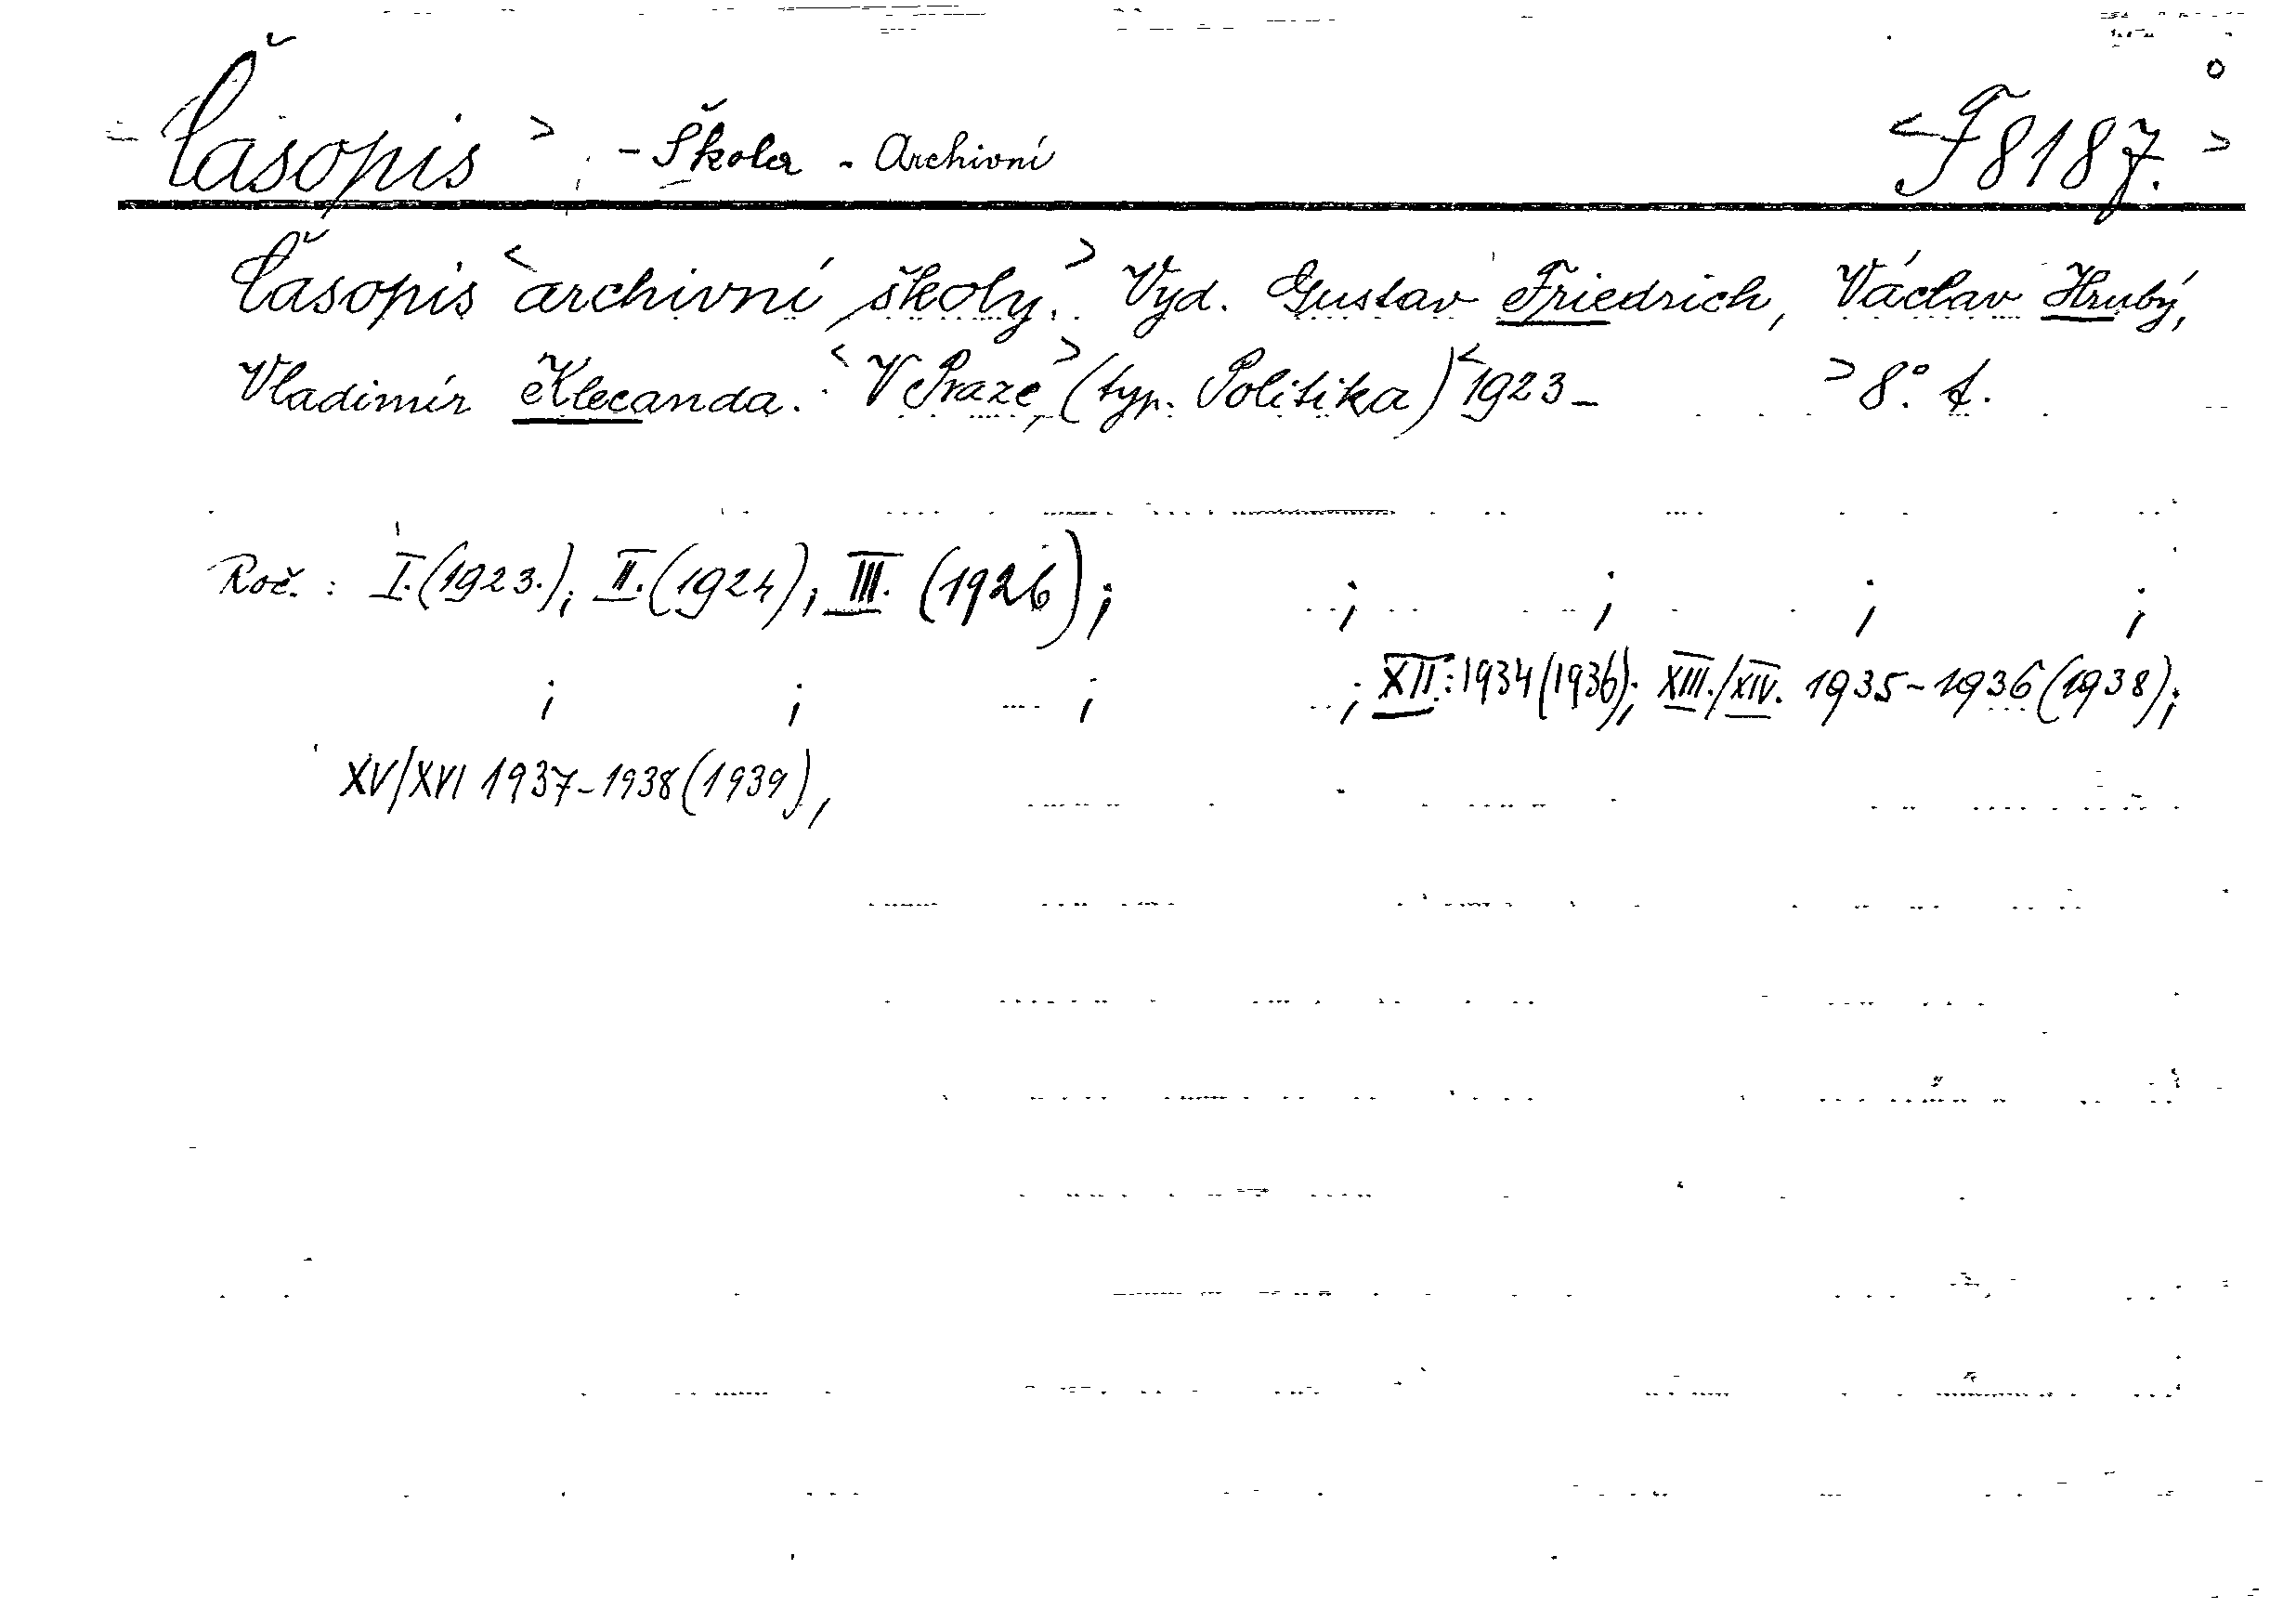 Časopis > - Škola - Archivní <F 8187. >
Časopis <archivní školy.> Vyd. Gustav Friedrich, Václav Hrubý,
Vladimír Klecanda. <V Praze,> (typ. Politika) <1923- > 8°. t.
Roč. : I. (1923.); II. (1924); III. (1926); ; ; ; ;
; ; ; ; XII: 1934 (1936); XIII./XIV. 1935-1936 (1938);
XV/XVI 1937-1938 (1939),